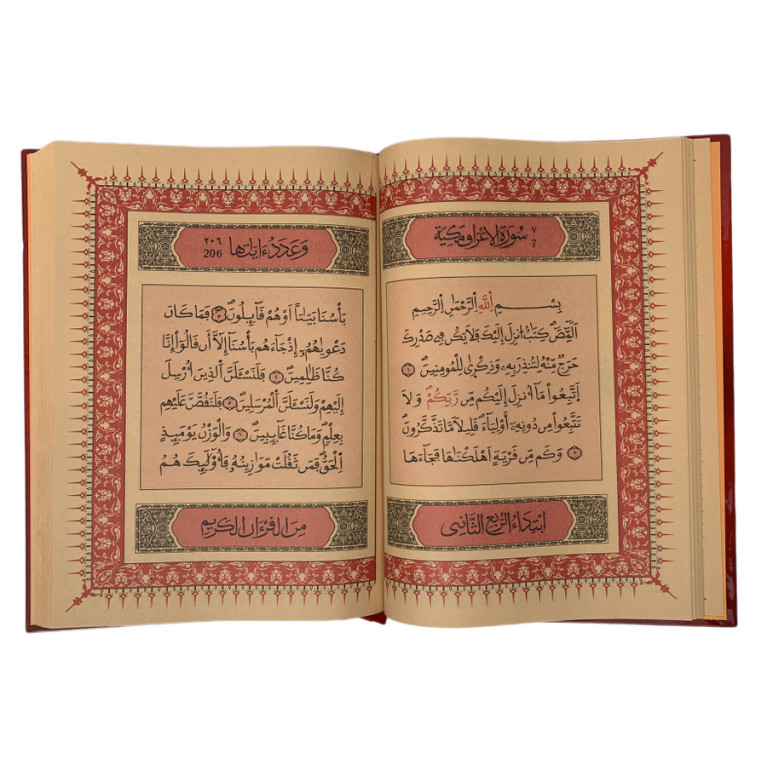 سُورَةُ الْأَعْرَافِ مَكِّيَّة ٧ 7
بِسْمِ اِللَّهِ اِلرَّحْمَٰنِ اِلرَّحِيمِ
أَلَٓمِّٓصَٓ كِتَٰبٌ ا۟نزِلَ إِلَيْكَ فَلَا يَكُن فِي صَدْرِكَ
حَرَجٌ مِّنْهُ لِتُنذِرَ بِهِۦ وَذِكْرَىٰ لِلْمُومِنِينَ ١
اَتَّبِعُوا مَآ أُنزِلَ إِلَيْكُم مِّن رَّبِّكُمْ وَلَا
تَتَّبِعُوا مِن دُونِهِۦٓ أَوْلِيَآءَ قَلِيلًا مَّا تَذَّكَّرُونَ ٢
وَكَم مِّن قَرْيَةٍ اَهْلَكْنَٰهَا فَجَآءَهَا
ابْتِدَاءُ الرُّبُعِ الثَّانِي
وَعَدَدُ ءَايَاتِهَا ٢٠٦ 206
بَأْسُنَا بَيَٰتًا اَوْ هُمْ قَآيِلُونَ ٣ فَمَا كَانَ
دَعْوَيٰهُمُۥٓ إِذْ جَآءَهُم بَأْسُنَآ إِلَّآ أَن قَالُوٓا إِنَّا
كُنَّا ظَٰلِمِينَ ٤ فَلَنَسْـَٔلَنَّ اَلذِينَ أُرْسِلَ
إِلَيْهِمْ وَلَنَسْـَٔلَنَّ اَلْمُرْسَلِينَ ٥ فَلَنَقُصَّنَّ عَلَيْهِم
بِعِلْمٍ وَمَا كُنَّا غَآيِبِينَ ٦ وَالْوَزْنُ يَوْمَيِذٍ
اِلْحَقُّ فَمَن ثَقُلَتْ مَوَٰزِينُهُۥ فَأُوْلَٰٓيِكَ هُمُ
مِنَ الْقُرْءَانِ الْكَرِيمِ